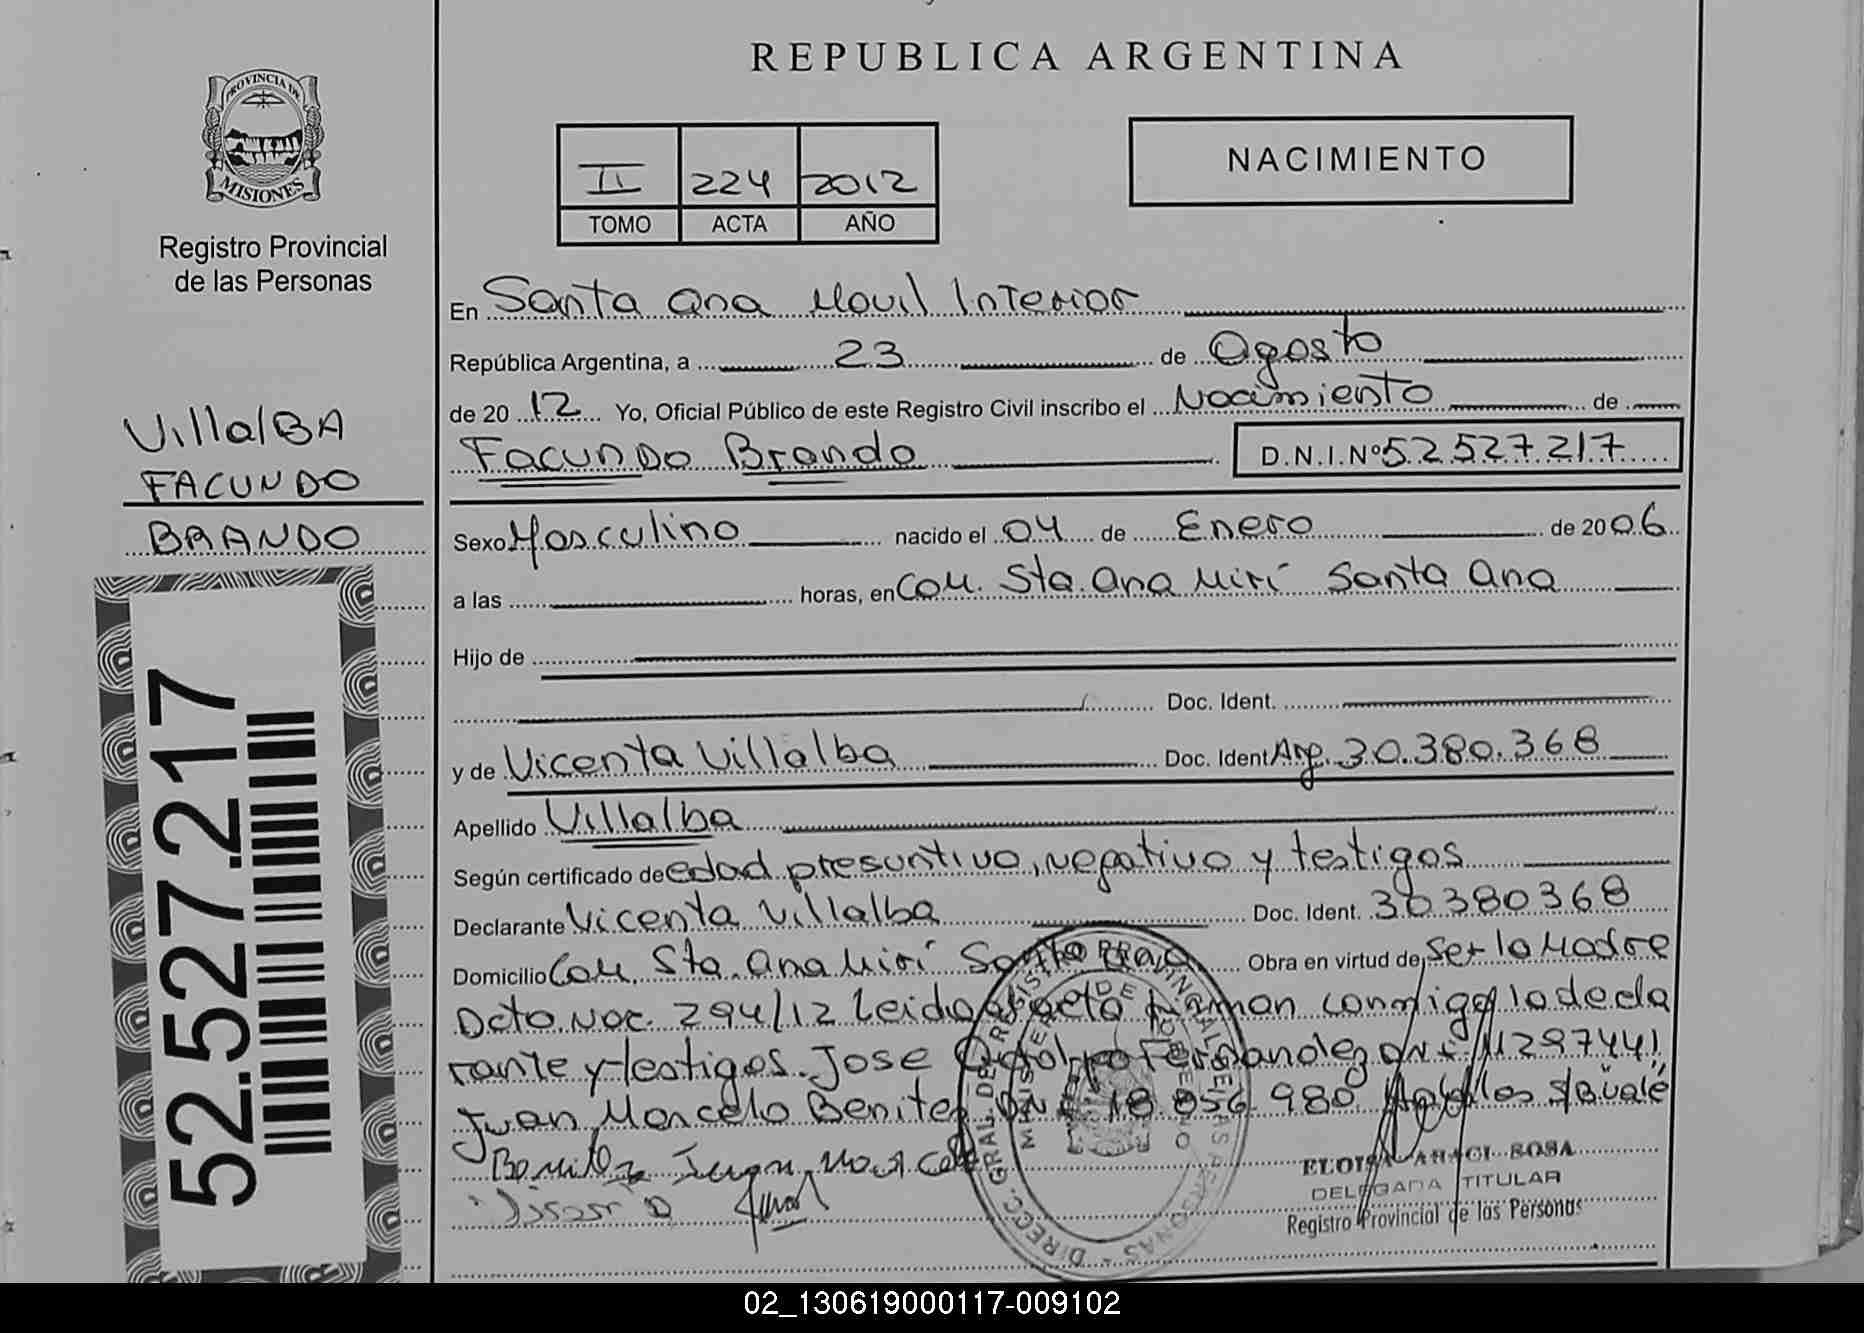 REPUBLICA ARGENTINA
PROVINCIA DE
MISIONES
Registro Provincial
de las Personas
II 224 2012
TOMO ACTA AÑO
NACIMIENTO
En Santa Ana Movil Interior
República Argentina, a 23 de Agosto
de 20 12 Yo, Oficial Público de este Registro Civil inscribo el Nacimiento de
Facundo Brando D.N.I.Nº 52 527 217
VillalBA
FACUNDO
BRANDO
Sexo Masculino nacido el 04 de Enero de 20 06
a las horas, en Com. Sta. Ana Mirí Santa Ana
Hijo de
Doc. Ident.
y de Vicenta Villalba Doc. Ident Arg. 30.380.368
Apellido Villalba
Según certificado de edad presuntivo, negativo y testigos
Declarante Vicenta Villalba Doc. Ident. 30380368
Domicilio Com. Sta. Ana Mirí Santa Ana Obra en virtud de ser la Madre
Dcto Nac. 294/12 Leida el acta firman conmigo la decla
rante y testigos. Jose Fernandez DNI 11297441
Juan Marcelo Benitez DNI 18 056 980
Benitez Juan Marcelo
ELOISA ARAGI SOSA
DELEGADA TITULAR
Registro Provincial de las Personas
52.527.217
02_130619000117-009102